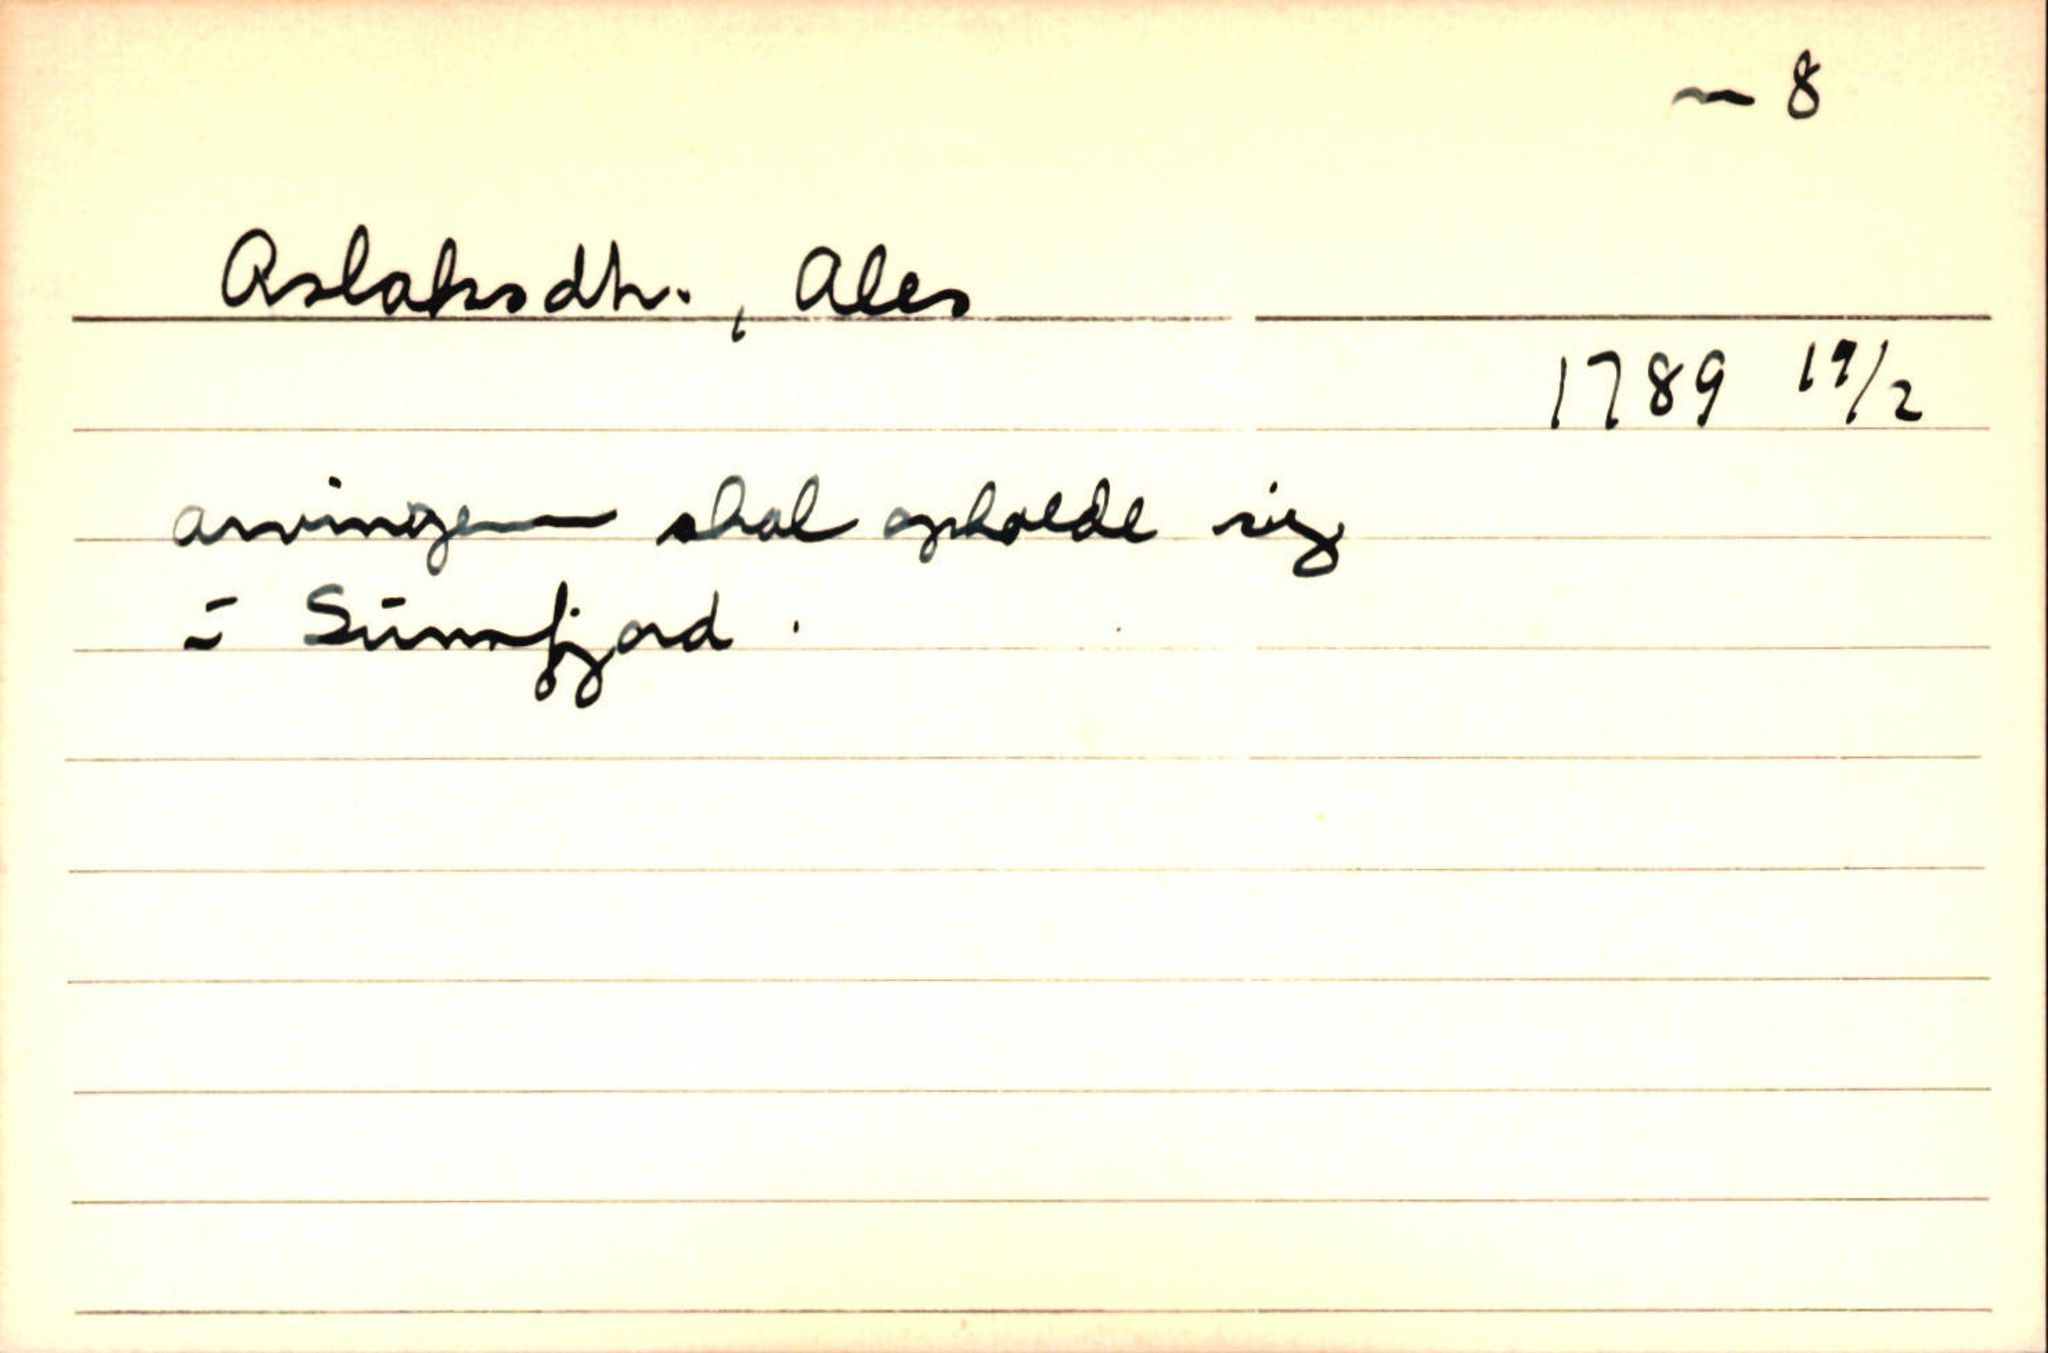 ~ 8
Aslaksdtr., Ales
1789 19/2
arvingen skal opholde sig
i Sunnfjord.